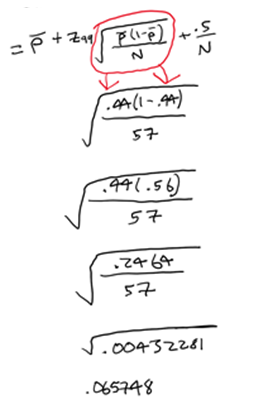 = p̄ + z₉₉ √(p̄(1-p̄)/N) + .5/N
√(.44(1-.44)/57)
√(.44(.56)/57)
√(.2464/57)
√.00432281
.065748